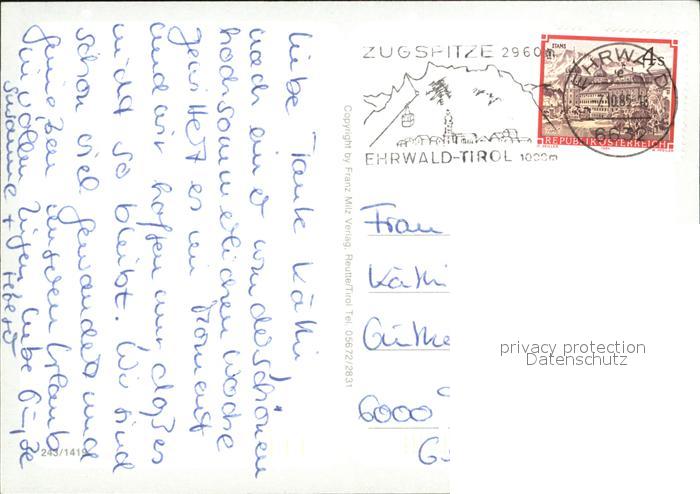 Liebe Tante Käthi
nach einer wunderschönen
hochsommerlichen Woche
gewittert es im Moment
und wir hoffen nur daß es
nicht so bleibt. Wir sind
schon viel gewandert und
genießen unseren Urlaub
in vollen Zügen. Liebe Grüße
Susanne +
Copyright by Franz Milz Verlag, Reutte/Tirol Tel. 05672/2831
243/1419
ZUGSPITZE 2960m
EHRWALD-TIROL 1000m
STAMS
4s
REPUBLIK ÖSTERREICH
EHRWALD
6632
Frau
Käthi
6000
privacy protection
Datenschutz